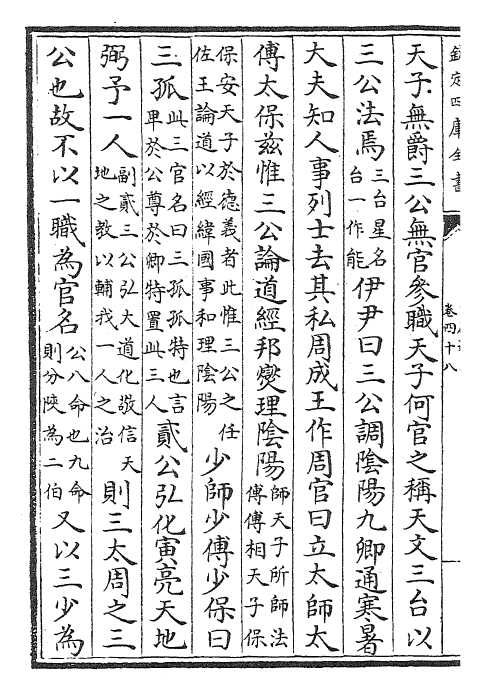 欽定四庫全書
卷四十八
天子無爵三公無官參職天子何官之稱天文三台以
三公法焉三台星名台一作能伊尹曰三公調陰陽九卿通寒暑
大夫知人事列士去其私周成王作周官曰立太師太
傅太保兹惟三公論道經邦燮理陰陽師天子所師法傅傅相天子保
保安天子於德義者此惟三公之任佐王論道以經緯國事和理陰陽少師少傅少保曰
三孤此三官名曰三孤孤特也言卑於公尊於卿特置此三人貳公弘化寅亮天地
弼予一人副貳三公弘大道化敬信天地之教以輔我一人之治則三太周之三
公也故不以一職為官名公八命也九命則分陝為二伯又以三少為